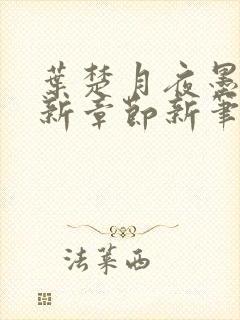 葉楚月夜墨
新章節新筆
法萊西